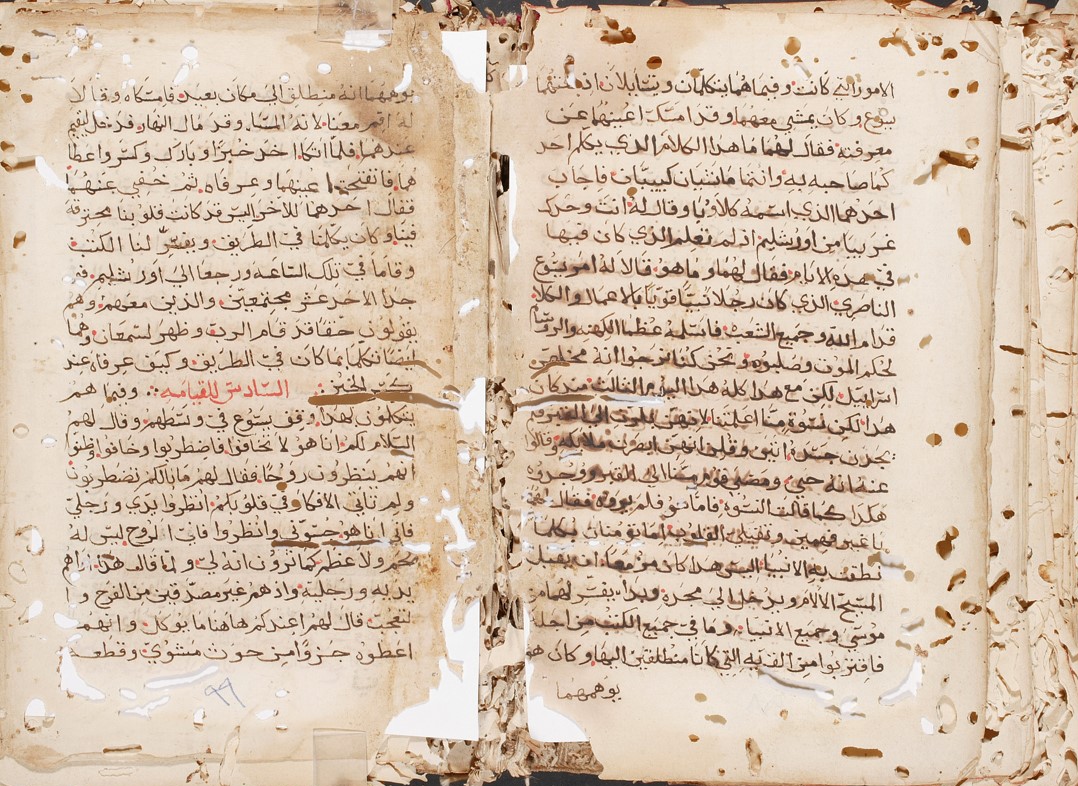 الامور التي كانت وفيما هما يتكلمان ويتسايلان اذ لحقهما
يسوع وكان يمشي معهما وقد امسك اعينهما عن
معرفته فقال لهما ما هذا الكلام الذي يكلم احد
كما صاحبه به وانتما ماشيان كييبان فاجاب
احدهما الذي اسمه كلاوبا وقال له انت وحدك
غريبا من اورشليم اذ لم تعلم الذي كان فيها
في هذه الايام فقال لهما وما هو قالا له امر يسوع
الناصري الذي كان رجلا نبيا قويا بالاعمال والكلام
قدام الله وجميع الشعب فاسلمه عظما الكهنه والروسا
لحكم الموت وصلبوه ونحن كنا نرجوا انه مخلص
اسراييل لكن مع هذا كله هذا اليوم الثالث منذ كان
هذا لكن نسوة منا اعلمننا لانهن الى القبر فلم
يجدن جسده اتين وقلن انهن ابصرن ملايكه وقالوا
عنه انه حي ومضى قوم منا الى القبر ووجدوه
هكذا كما قالت النسوة فاما هو فلم يروه فقال لهما
يا غير فهمين وثقيلي القلوب اما تومنان بكلما
نطقت به الانبيا اليس هذا كان مزمعا ان يقبل
المسيح الالام ويدخل الى مجده وبدا يفسر لهما من
موسى وجميع الانبيا وما في جميع الكتب من اجله
فاقتربوا من القريه التي كانا منطلقين اليها وكان هو
يوهمهما
يوهمهما انه منطلق الى مكان بعيد فامسكاه وقالا
له اقم معنا لانه المسا وقد مال النهار فدخل ليقيم
عندهما فلما اتكا اخذ خبزا وبارك وكسر واعطا
هما فانفتحت اعينهما وعرفاه ثم خفي عنهما
فقال احدهما للاخر اليس قد كانت قلوبنا محترقه
فينا وكان يكلمنا في الطريق ويفسر لنا الكتب
وقاما في تلك الساعه ورجعا الى اورشليم فو
جدا الاحد عشر مجتمعين والذين معهم وهم
يقولون حقا قد قام الرب وظهر لسمعان وهما
ايضا تكلما بما كان في الطريق وكيف عرفاه عند
كسر الخبز السادس للقيامه وفيما هم
يتكلمون بهذا وقف يسوع في وسطهم وقال لهم
السلام لكم انا هو لا تخافوا فاضطربوا وخافوا وظنوا
انهم ينظرون روحا فقال لهم ما بالكم تضطربون
ولم تاتي الافكار في قلوبكم انظروا يدي ورجلي
فاني انا هو جسوني وانظروا فان الروح ليس له
لحم ولا عظم كما ترون انه لي ولما قال هذا اراهم
يديه ورجليه واذ هم غير مصدقين من الفرح وا
لتعجب قال لهم اعندكم هاهنا ما يوكل وانهم
اعطوه جزوا من حوت مشوي وقطعه
٩٩